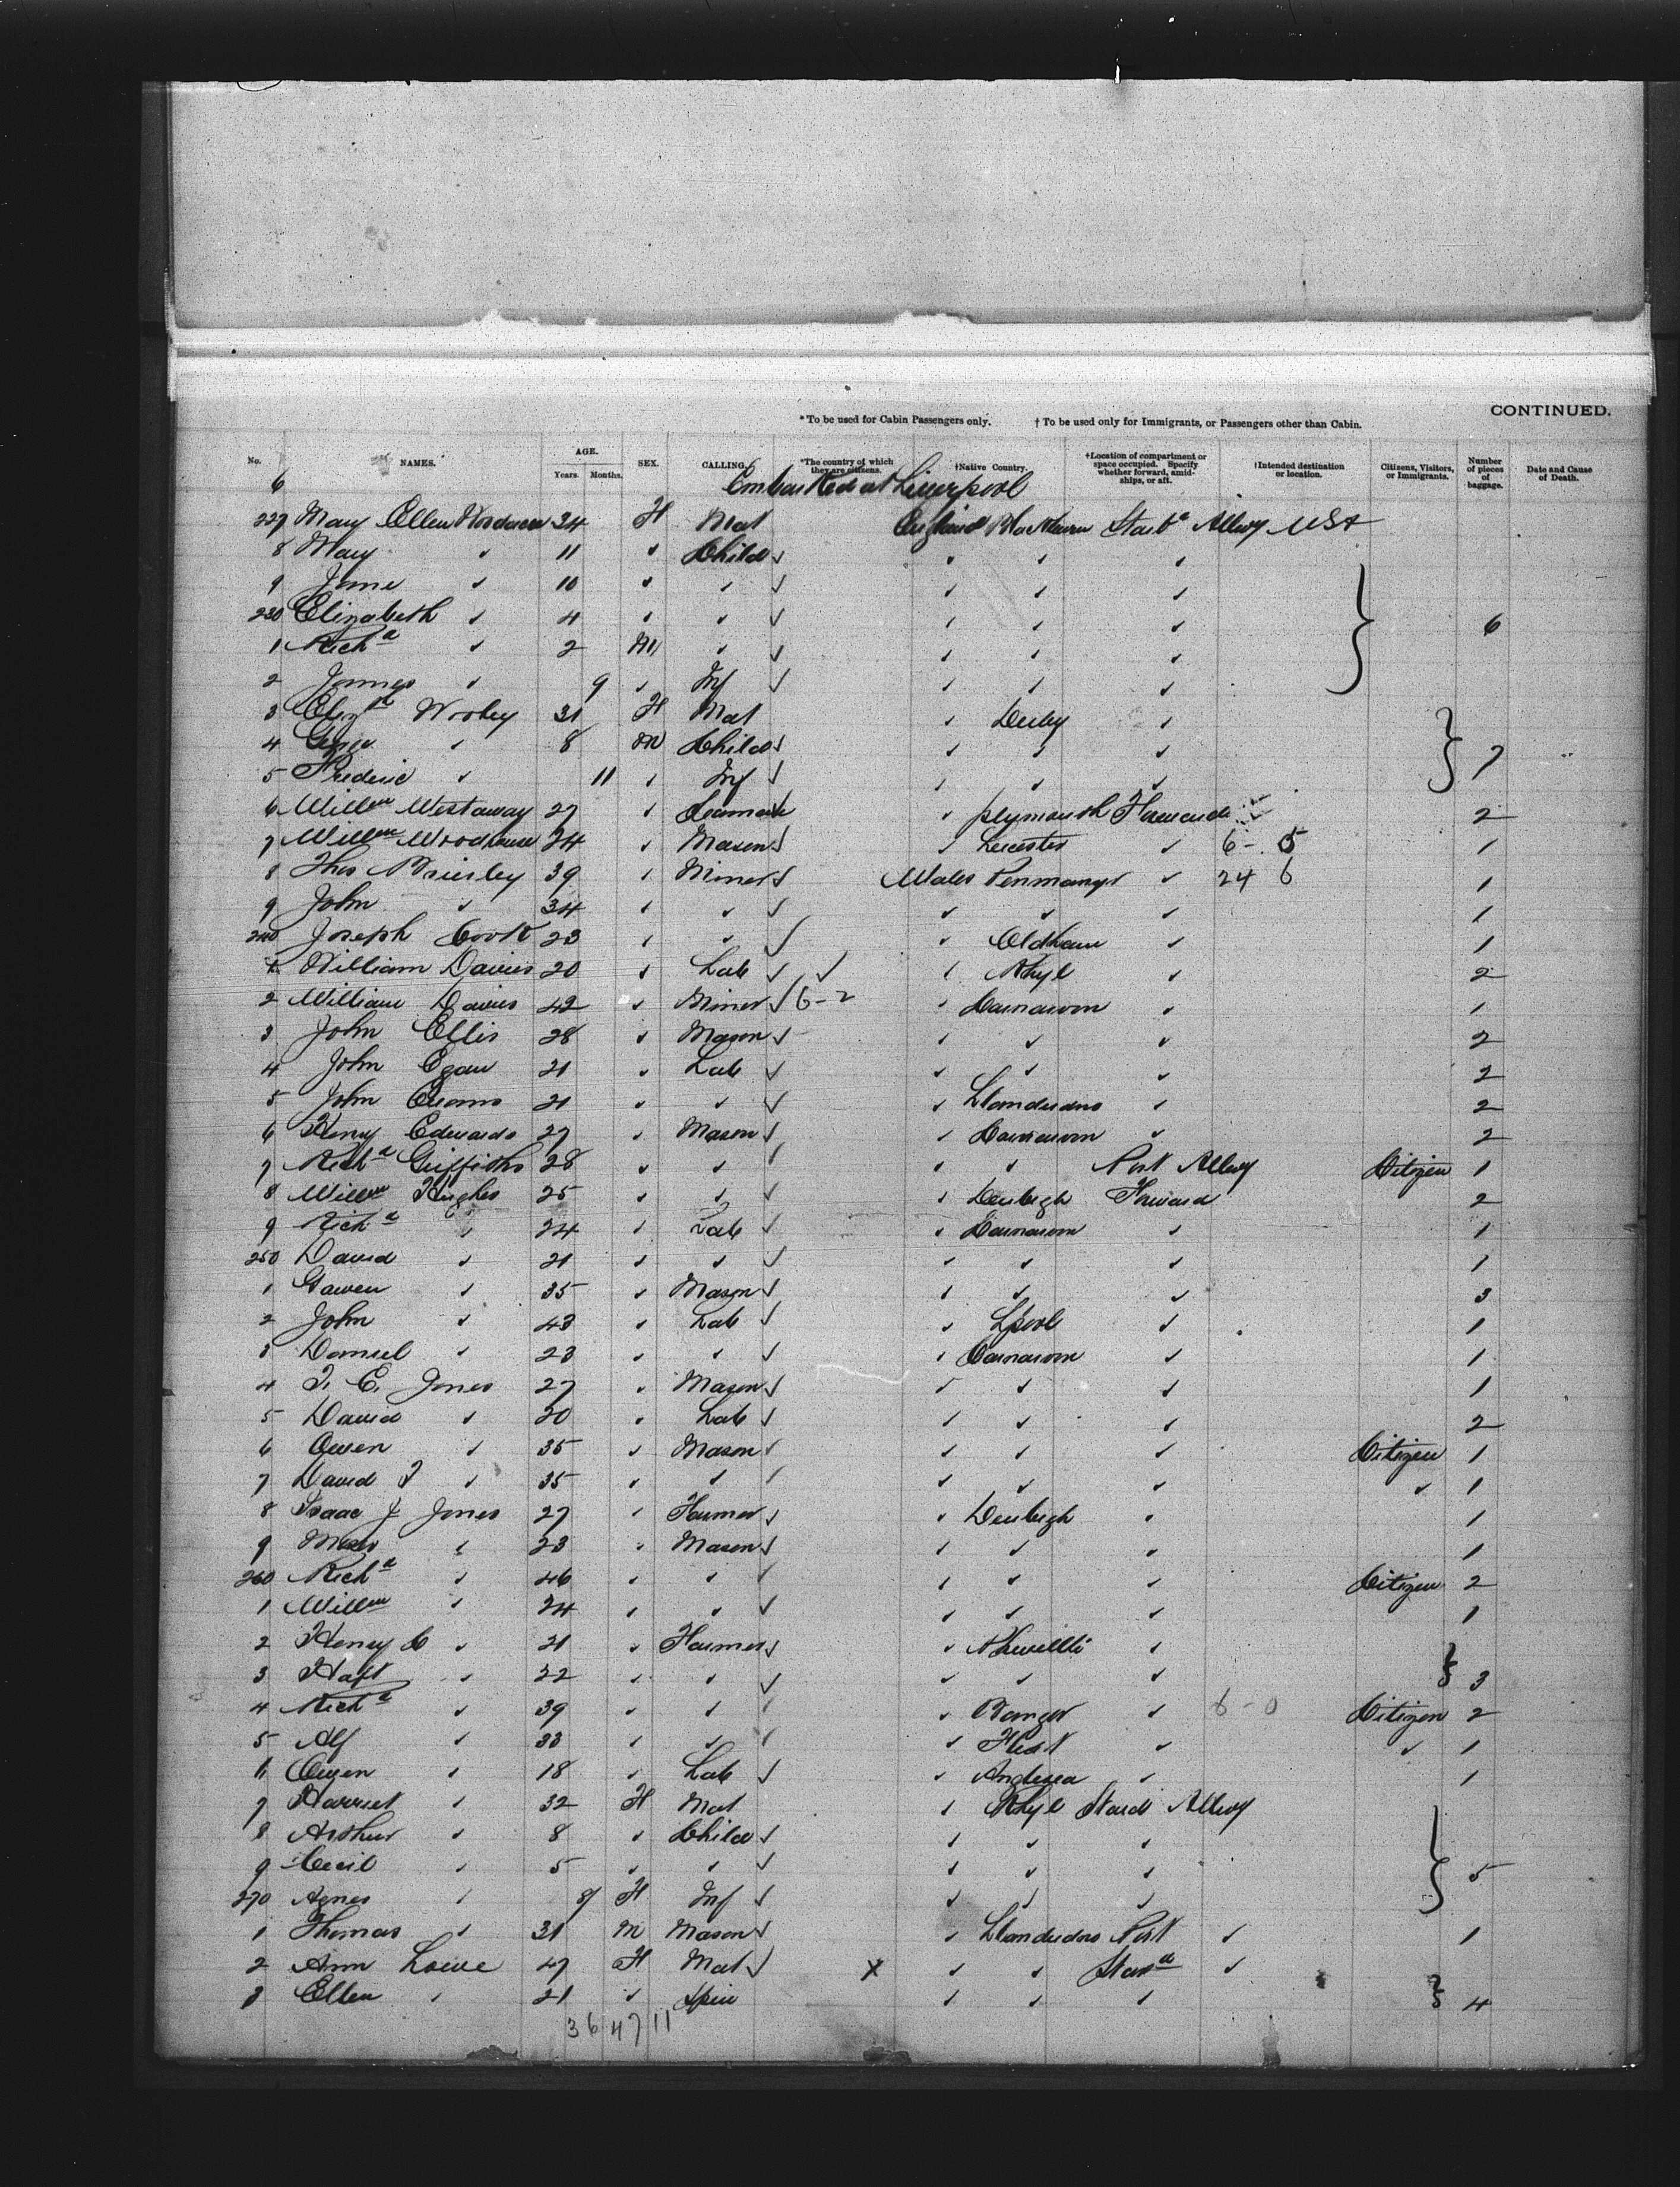 CONTINUED.
*To be used for Cabin Passengers only. † To be used only for Immigrants, or Passengers other than Cabin.
No. NAMES. AGE. Years. Months. SEX. CALLING. *The country of which they are citizens. †Native Country. †Location of compartment or space occupied. Specify whether forward, amidships, or aft. †Intended destination or location. Citizens, Visitors, or Immigrants. Number of pieces of baggage. Date and Cause of Death.
6 Embarked at Liverpool
227 Mary Ellen 34 F Mat England Blackburn Starbd Allwy USA
8 Mary " 11 " Child " " "
9 Jane " 10 " " " " "
230 Elizabeth " 4 " " " " " 6
1 Richd " 2 M " " " "
2 James " 9 " Inf " " "
3 Elizth Worley 31 F Mat " Derby "
4 George " 8 M Child " " " 7
5 Frederic " 11 " Inf " " "
6 Willm Westaway 27 " Seaman " Plymouth Forward 2
7 Willm Woodhouse 24 " Mason " Leicester " 6- 5 1
8 Thos Brierley 39 " Miner Wales " 24 6 1
9 John " 34 " " " " " 1
240 Joseph Cook 23 " " " Oldham " 1
1 William Davies 20 " Lab " Rhyl " 2
2 William Davies 42 " Miner 6-2 " Carnarvon " 1
3 John Ellis 28 " Mason " " " 2
4 John Egan 21 " Lab " " " 2
5 John Evans 21 " " " Llandudno " 2
6 Henry Edwards 27 " Mason " Carnarvon " 2
7 Richd Griffiths 28 " " " " Port Allwy Citizen 1
8 Willm Hughes 25 " " " Denbigh Forward 2
9 Richd " 24 " Lab " Carnarvon " 1
250 David " 21 " " " " " 1
1 Gawen " 35 " Mason " " " 3
2 John " 43 " Lab " Lpool " 1
3 Daniel " 23 " " " Carnarvon " 1
4 T. E. Jones 27 " Mason " " " 1
5 David " 20 " Lab " " " 2
6 Owen " 35 " Mason " " " Citizen 1
7 David T " 35 " " " " " " 1
8 Isaac J Jones 27 " Farmer " Denbigh " 1
9 " 23 " Mason " " " 1
260 Richd " 46 " " " " " Citizen 2
1 Willm " 24 " " " " " 1
2 Henry C " 21 " Farmer " "
3 " 22 " " " " " 3
4 Richd " 39 " " " Bangor " 6-0 Citizen 2
5 Alf " 33 " " " " " 1
6 Owen " 18 " Lab " " 1
7 Harriet " 32 F Mat " Rhyl Starbd Allwy
8 Arthur " 8 " Child " " "
9 Cecil " 5 " " " " " 5
270 Agnes " 8 F Inf " " "
1 Thomas " 31 M Mason " Llandudno Port " 1
2 Ann Lowe 47 F Mat X " " Starbd "
3 Ellen " 21 " Spin " " " 4
36 47 11